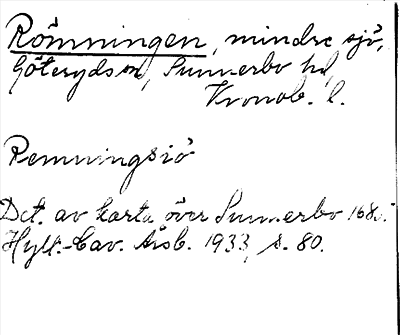 Römningen, mindre sjö,
Göteryds sn, Sunnerbo hd,
Kronob. l.
Remningsiö
Det. av karta över Sunnerbo 168.
Hylt.-Cav. Årsb. 1933, s. 80.